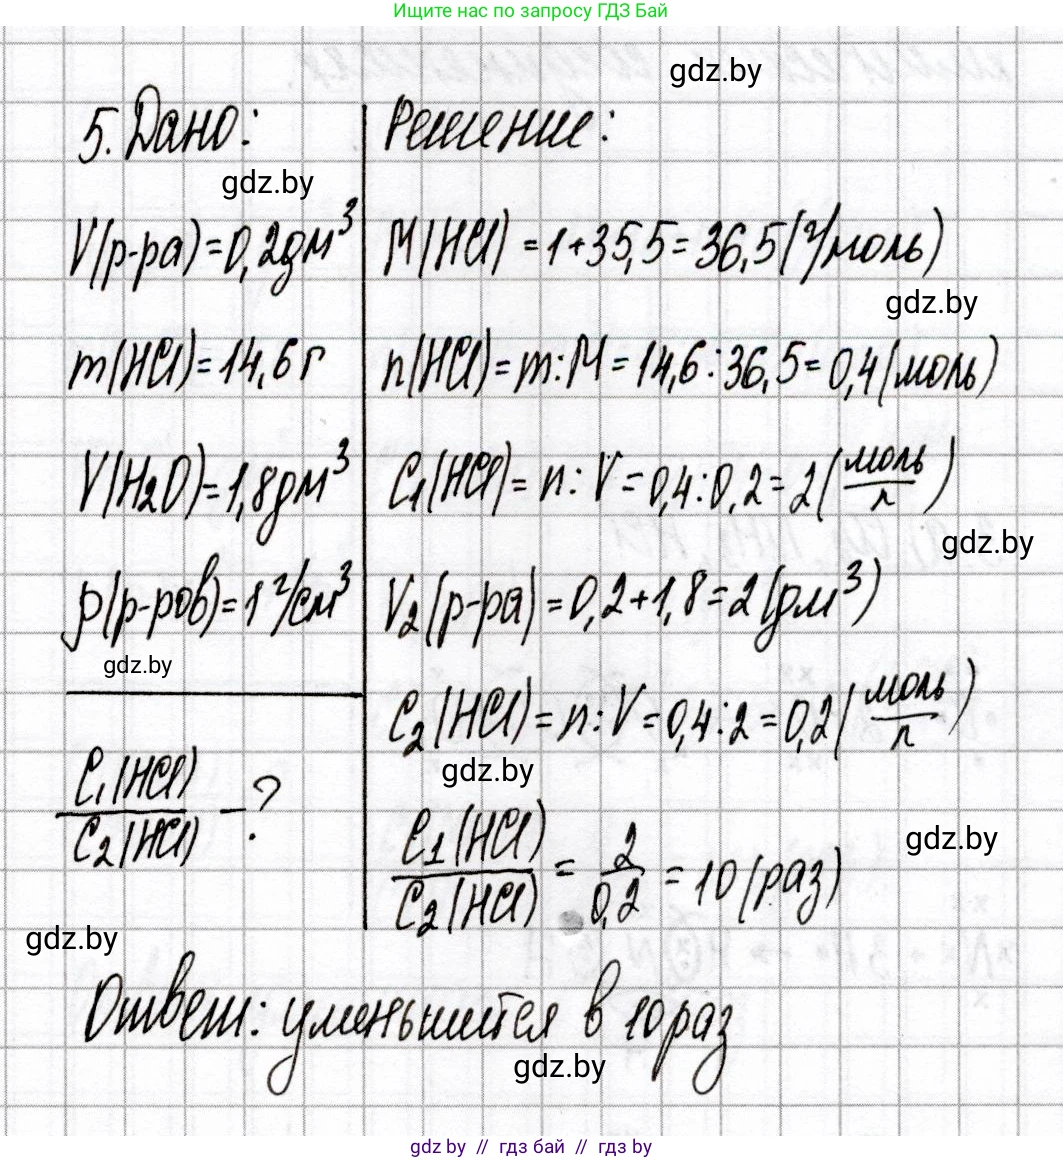 Ищите нас по запросу ГДЗ Бай
gdz.by
5. Дано:
gdz.by
V(р-ра)=0,2дм³
m(HCl)=14,6г
V(H₂O)=1,8дм³
ρ(р-ров)=1 г/см³
gdz.by
C₁(HCl)/C₂(HCl) - ?
gdz.by
Решение:
M(HCl) = 1+35,5 = 36,5(г/моль)
gdz.by
n(HCl) = m:M = 14,6:36,5 = 0,4(моль)
C₁(HCl) = n:V = 0,4:0,2 = 2(моль/л)
gdz.by
V₂(р-ра) = 0,2+1,8 = 2(дм³)
C₂(HCl) = n:V = 0,4:2 = 0,2(моль/л)
gdz.by
C₁(HCl)/C₂(HCl) = 2/0,2 = 10(раз)
gdz.by
Ответ: уменьшится в 10 раз
gdz.by
gdz by // гдз бай // гдз by